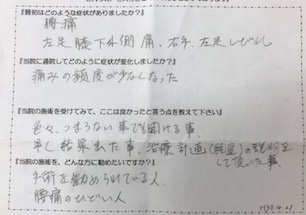 『最初はどのような症状がありましたか?』
腰痛
左足膝下外側痛、右手、左足しびれ
『当院に通院してどのように症状が変化しましたか?』
痛みの頻度が少なくなった
『当院の施術を受けてみて、ここは良かったと言う点を教えて下さい』
色々、つまらない事でも聞ける事
早く結果出た事、治療計画(頻度)の説明を
して頂いた事
『当院の施術を、どんな方に勧めたいですか?』
手術を勧められている人
腰痛のひどい人
H30.4.21